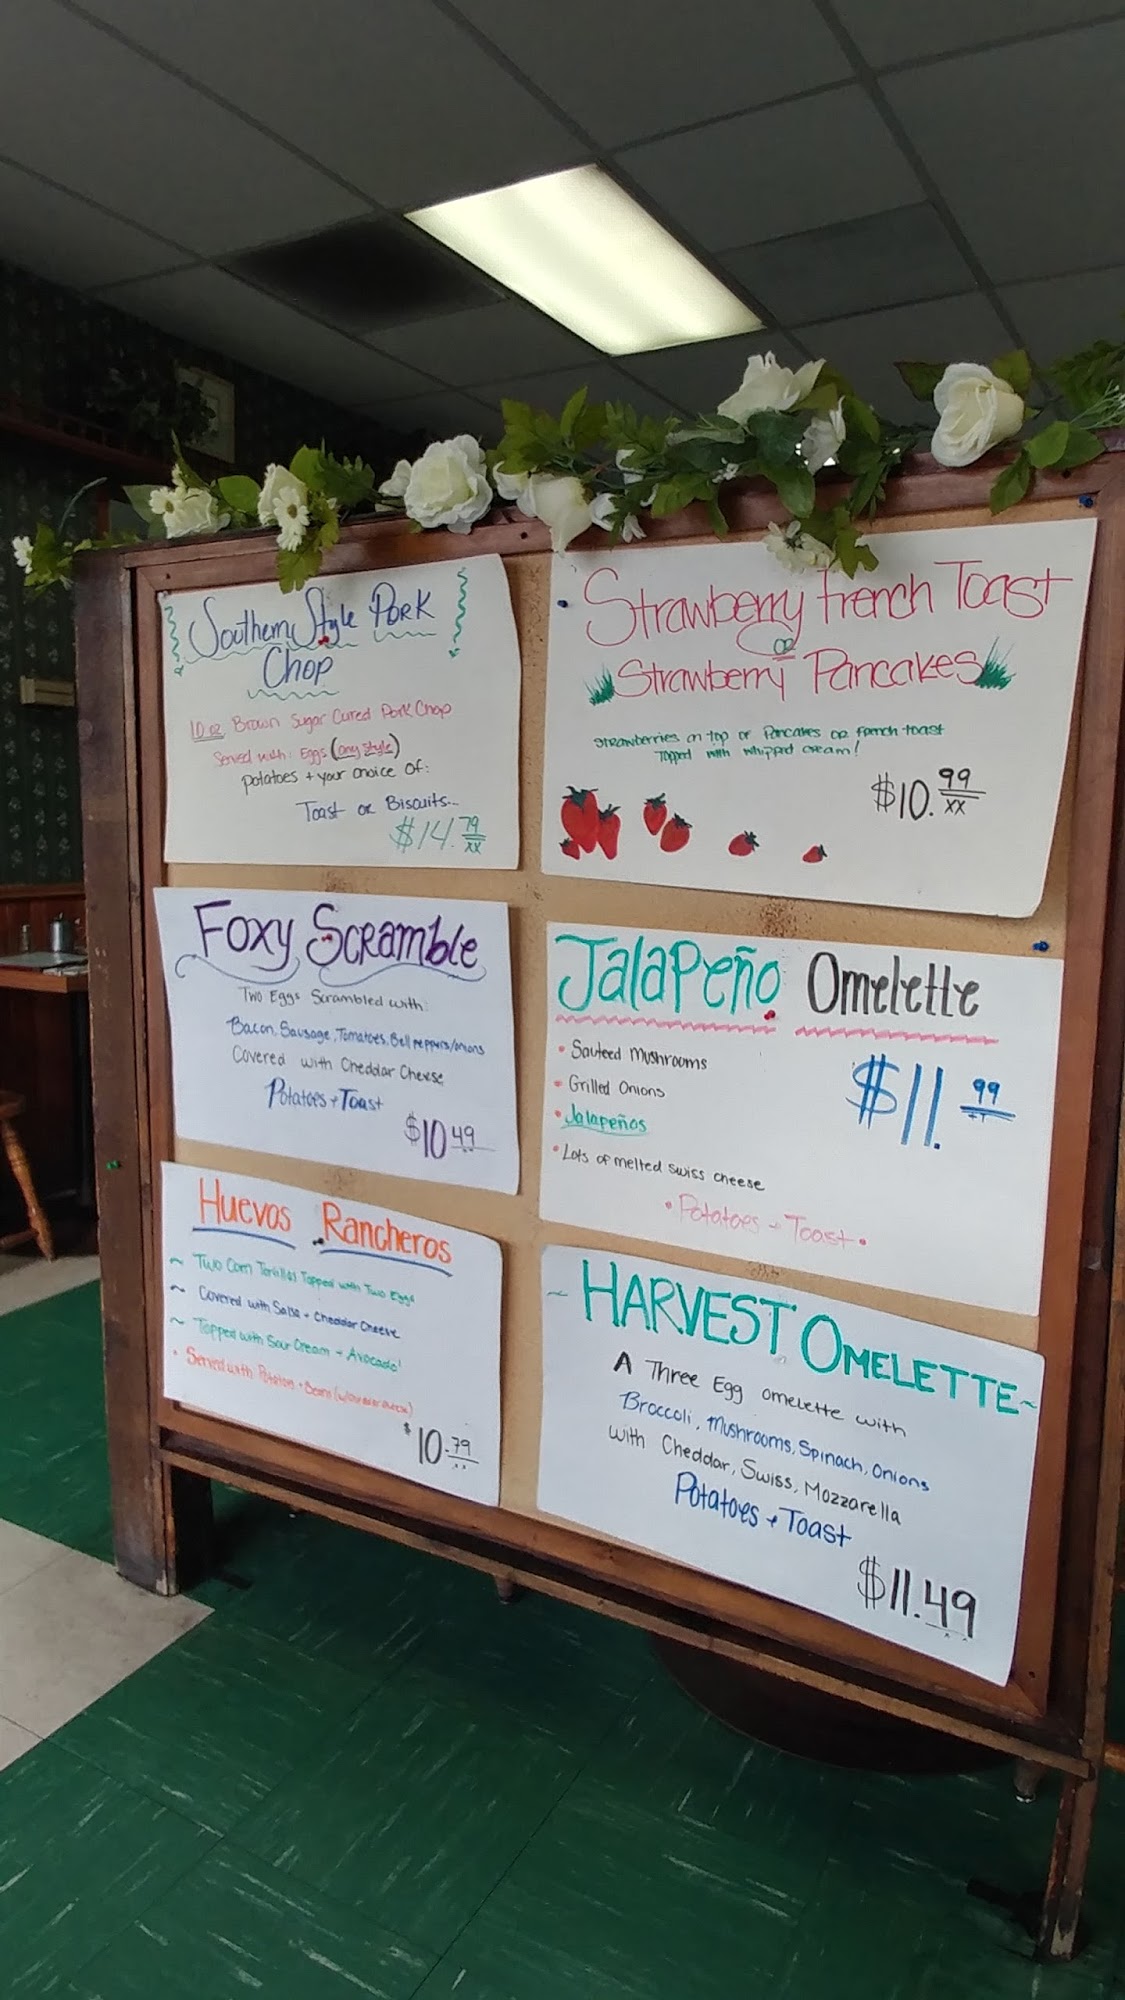 Southern Style Pork
Chop
10 oz Brown Sugar Cured Pork Chop
Served with: Eggs (any style)
potatoes + your choice of:
Toast or Biscuits...
$14.79
xx
Strawberry French Toast
or
Strawberry Pancakes
Strawberries on top of Pancakes or french toast
Topped with whipped cream!
$10.99
xx
Foxy Scramble
Two Eggs Scrambled with:
Bacon, Sausage, Tomatoes, Bell peppers/onions
Covered with Cheddar Cheese
Potatoes + Toast
$10.49
Jalapeño Omelette
• Sauteed Mushrooms
• Grilled Onions
• Jalapeños
• Lots of melted swiss cheese
$11.99
• Potatoes + Toast •
Huevos Rancheros
~ Two Corn Tortillas Topped with Two Eggs
~ Covered with Salsa + Cheddar Cheese
~ Topped with Sour Cream + Avocado!
• Served with Potatoes + Beans
$10.79
~ HARVEST OMELETTE ~
A Three Egg omelette with
Broccoli, Mushrooms, Spinach, Onions
with Cheddar, Swiss, Mozzarella
Potatoes + Toast
$11.49